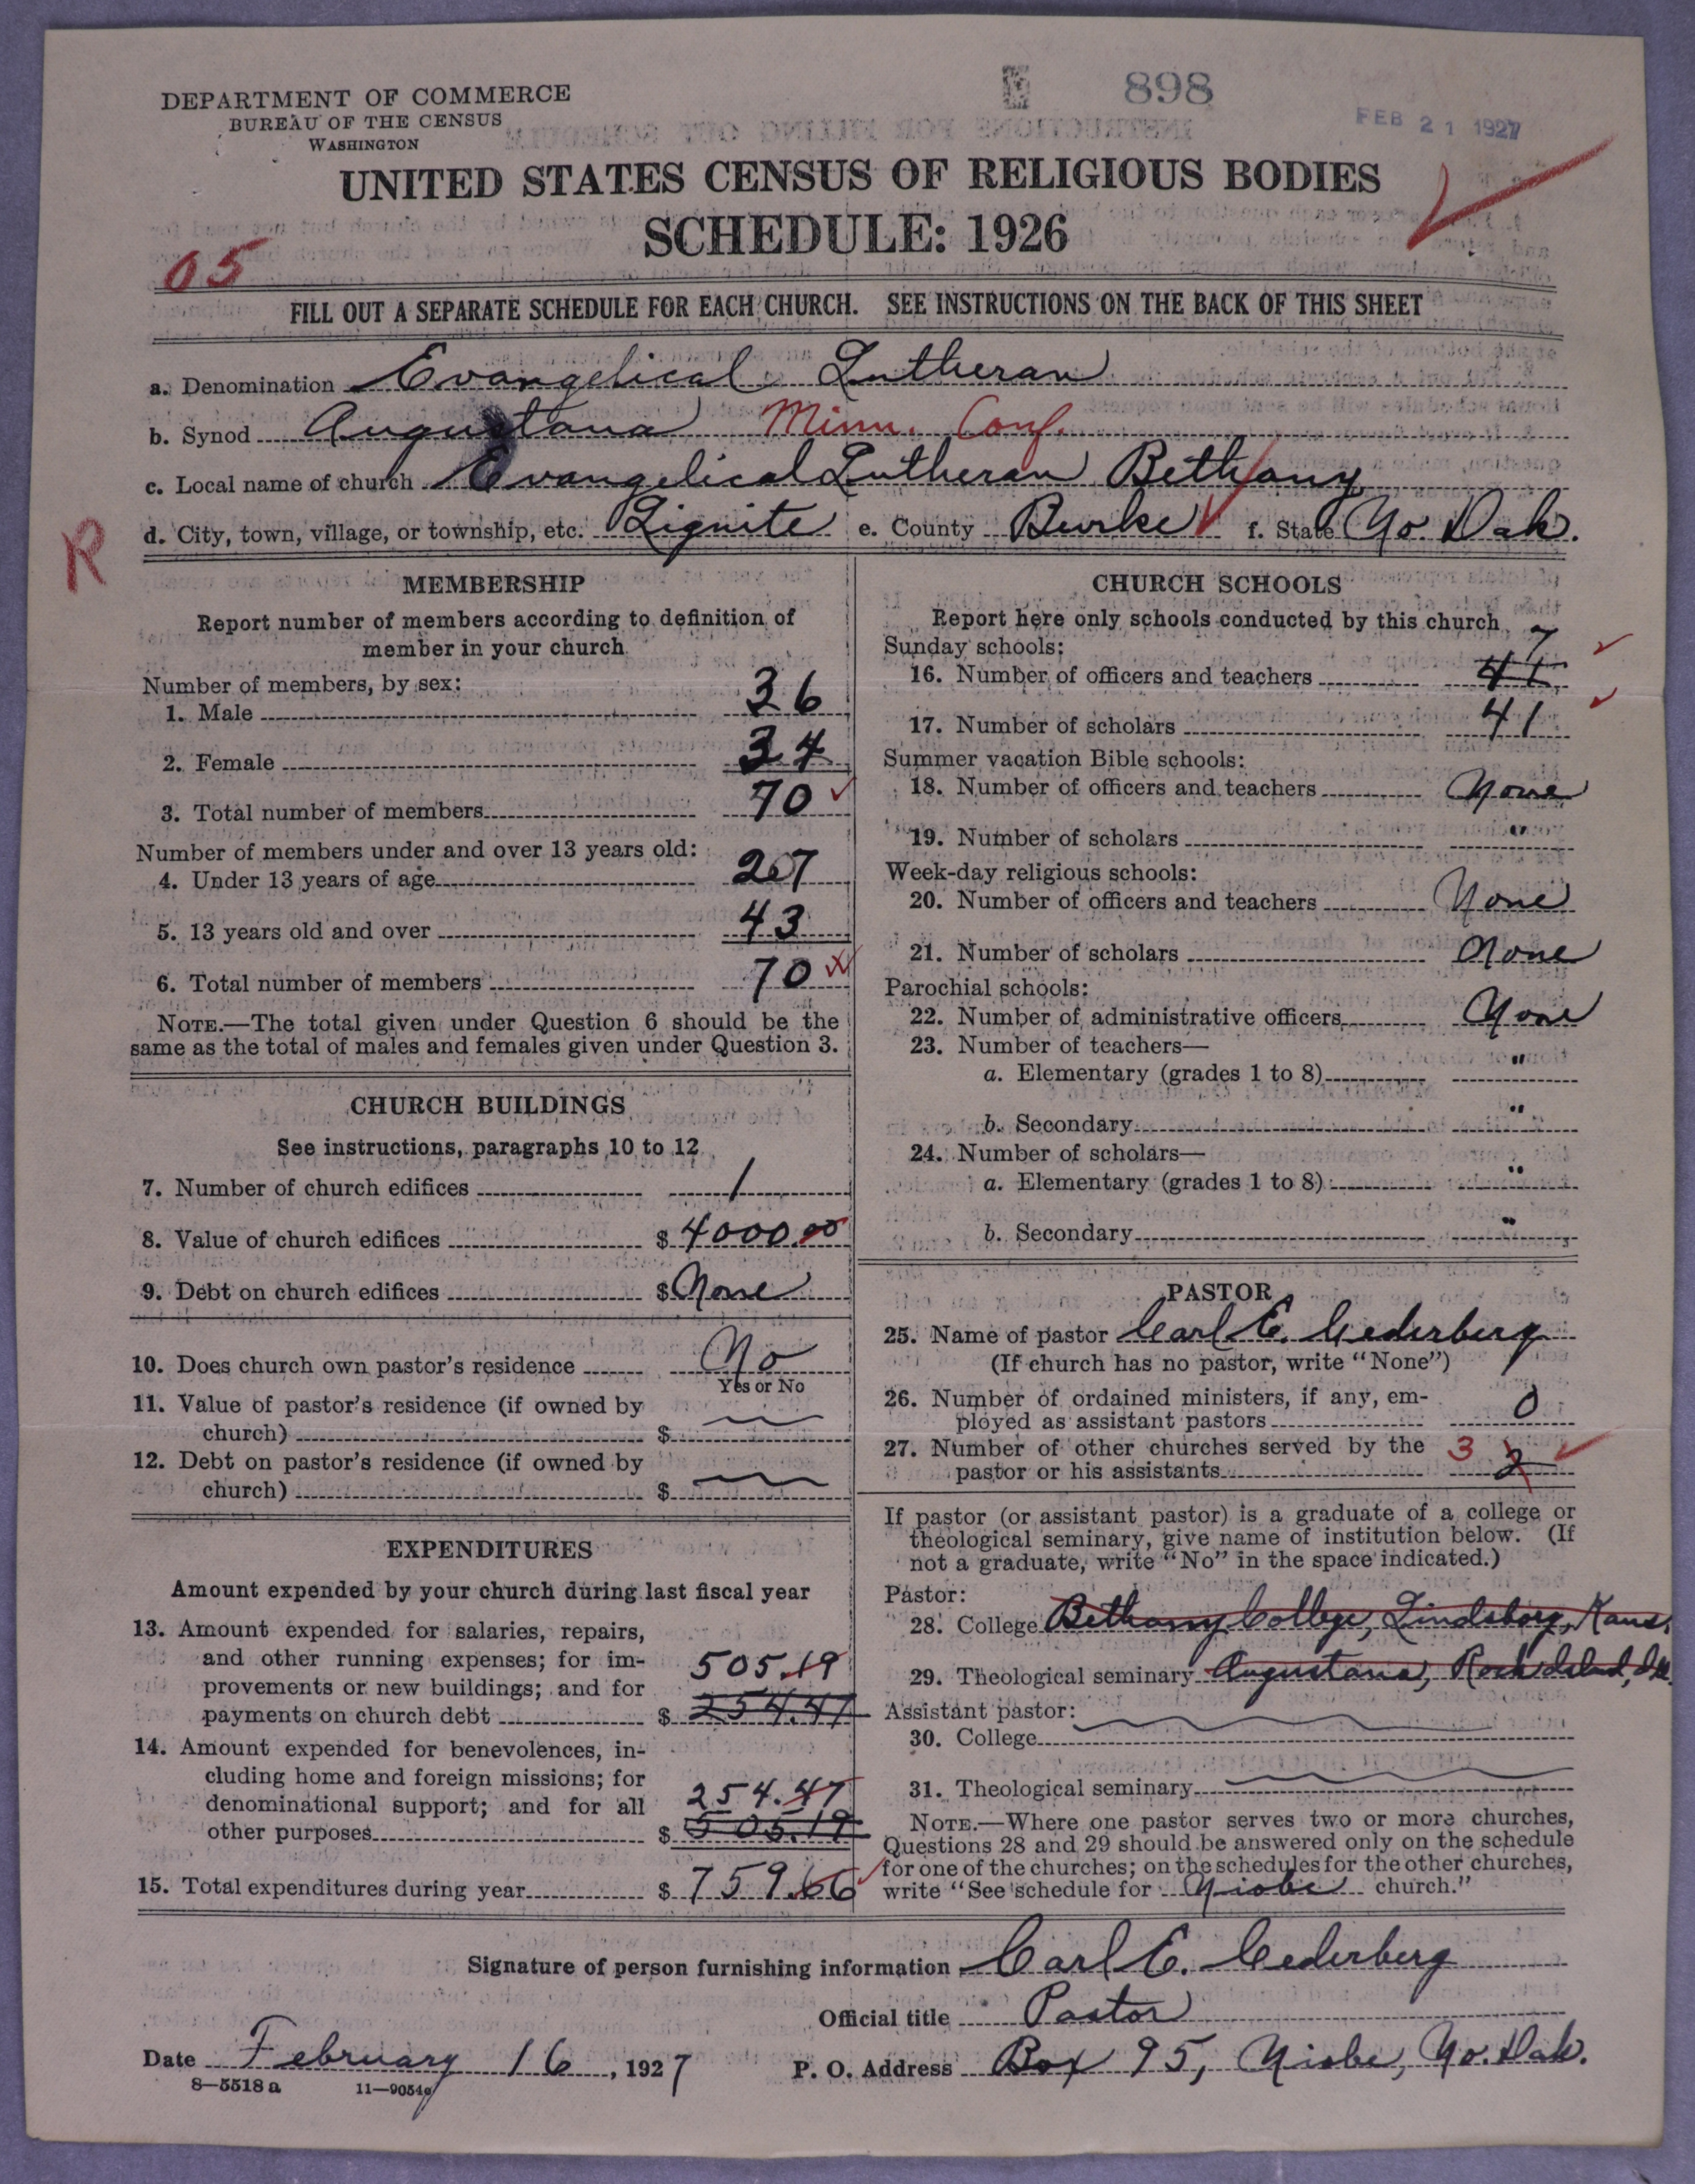 898
FEB 21 1927
DEPARTMENT OF COMMERCE
BUREAU OF THE CENSUS
WASHINGTON
UNITED STATES CENSUS OF RELIGIOUS BODIES
SCHEDULE: 1926
05
FILL OUT A SEPARATE SCHEDULE FOR EACH CHURCH. SEE INSTRUCTIONS ON THE BACK OF THIS SHEET
a. Denomination Evangelical Lutheran
b. Synod Augustana Minn. Conf.
c. Local name of church Evangelical Lutheran Bethany
d. City, town, village, or township, etc. Lignite e. County Burke f. State No. Dak.
R
MEMBERSHIP
Report number of members according to definition of
member in your church
Number of members, by sex:
1. Male 36
2. Female 34
3. Total number of members 70
Number of members under and over 13 years old:
4. Under 13 years of age 27
5. 13 years old and over 43
6. Total number of members 70
NOTE.—The total given under Question 6 should be the
same as the total of males and females given under Question 3.
CHURCH BUILDINGS
See instructions, paragraphs 10 to 12
7. Number of church edifices 1
8. Value of church edifices $ 4000.00
9. Debt on church edifices $ None
10. Does church own pastor's residence No
Yes or No
11. Value of pastor's residence (if owned by
church) $
12. Debt on pastor's residence (if owned by
church) $
EXPENDITURES
Amount expended by your church during last fiscal year
13. Amount expended for salaries, repairs,
and other running expenses; for im-
provements or new buildings; and for 505.19
payments on church debt $ 254.47
14. Amount expended for benevolences, in-
cluding home and foreign missions; for
denominational support; and for all 254.47
other purposes $ 505.19
15. Total expenditures during year $ 759.66
CHURCH SCHOOLS
Report here only schools conducted by this church
Sunday schools: 7
16. Number of officers and teachers 41
17. Number of scholars 41
Summer vacation Bible schools:
18. Number of officers and teachers None
19. Number of scholars "
Week-day religious schools:
20. Number of officers and teachers None
21. Number of scholars None
Parochial schools:
22. Number of administrative officers None
23. Number of teachers—
a. Elementary (grades 1 to 8) "
b. Secondary "
24. Number of scholars—
a. Elementary (grades 1 to 8) "
b. Secondary "
PASTOR
25. Name of pastor Carl E. Cederberg
(If church has no pastor, write "None")
26. Number of ordained ministers, if any, em-
ployed as assistant pastors 0
27. Number of other churches served by the 3
pastor or his assistants 2
If pastor (or assistant pastor) is a graduate of a college or
theological seminary, give name of institution below. (If
not a graduate, write "No" in the space indicated.)
Pastor:
28. College Bethany College, Lindsborg, Kans.
29. Theological seminary Augustana, Rock Island, Ill.
Assistant pastor:
30. College
31. Theological seminary
NOTE.—Where one pastor serves two or more churches,
Questions 28 and 29 should be answered only on the schedule
for one of the churches; on the schedules for the other churches,
write "See schedule for Niobe church."
Signature of person furnishing information Carl E. Cederberg
Official title Pastor
Date February 16, 1927 P. O. Address Box 95, Niobe, No. Dak.
8—5518 a 11—9054a